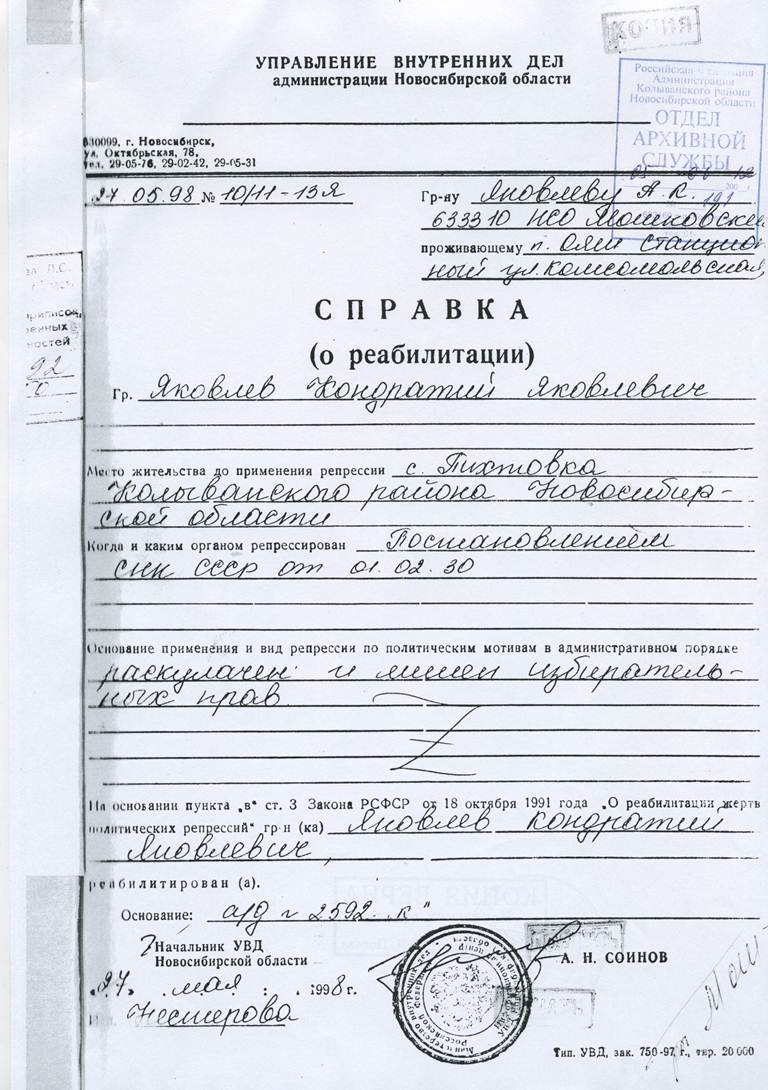 КОПИЯ
УПРАВЛЕНИЕ ВНУТРЕННИХ ДЕЛ
администрации Новосибирской области
Российская Федерация
Администрация
Колыванского района
Новосибирской области
ОТДЕЛ
АРХИВНОЙ
СЛУЖБЫ
630099, г. Новосибирск,
ул. Октябрьская, 78,
тел. 29-05-76, 29-02-42, 29-05-31
27.05.98 № 10/11-13Я
Гр-ну Яковлеву А.К.
191
633310 НСО Мошковский
проживающему п. Ояш станцион-
ный ул. Комсомольская,
Л.С.
приписок,
ностей
92
СПРАВКА
(о реабилитации)
Гр. Яковлев Кондратий Яковлевич
Место жительства до применения репрессии с. Пихтовка
Колыванского района Новосибир-
ской области
Когда и каким органом репрессирован Постановлением
СНК СССР от 01.02.30
Основание применения и вид репрессии по политическим мотивам в административном порядке
раскулачен и лишен избиратель-
ных прав.
На основании пункта „в" ст. 3 Закона РСФСР от 18 октября 1991 года „О реабилитации жертв
политических репрессий" гр-н (ка) Яковлев Кондратий
Яковлевич,
реабилитирован (а).
Основание: а/д г 2592 „к"
Начальник УВД
Новосибирской области
А. Н. СОИНОВ
„27" мая 1998 г.
Исп. Нестерова
Тип. УВД, зак. 750-97 г., тир. 20 000